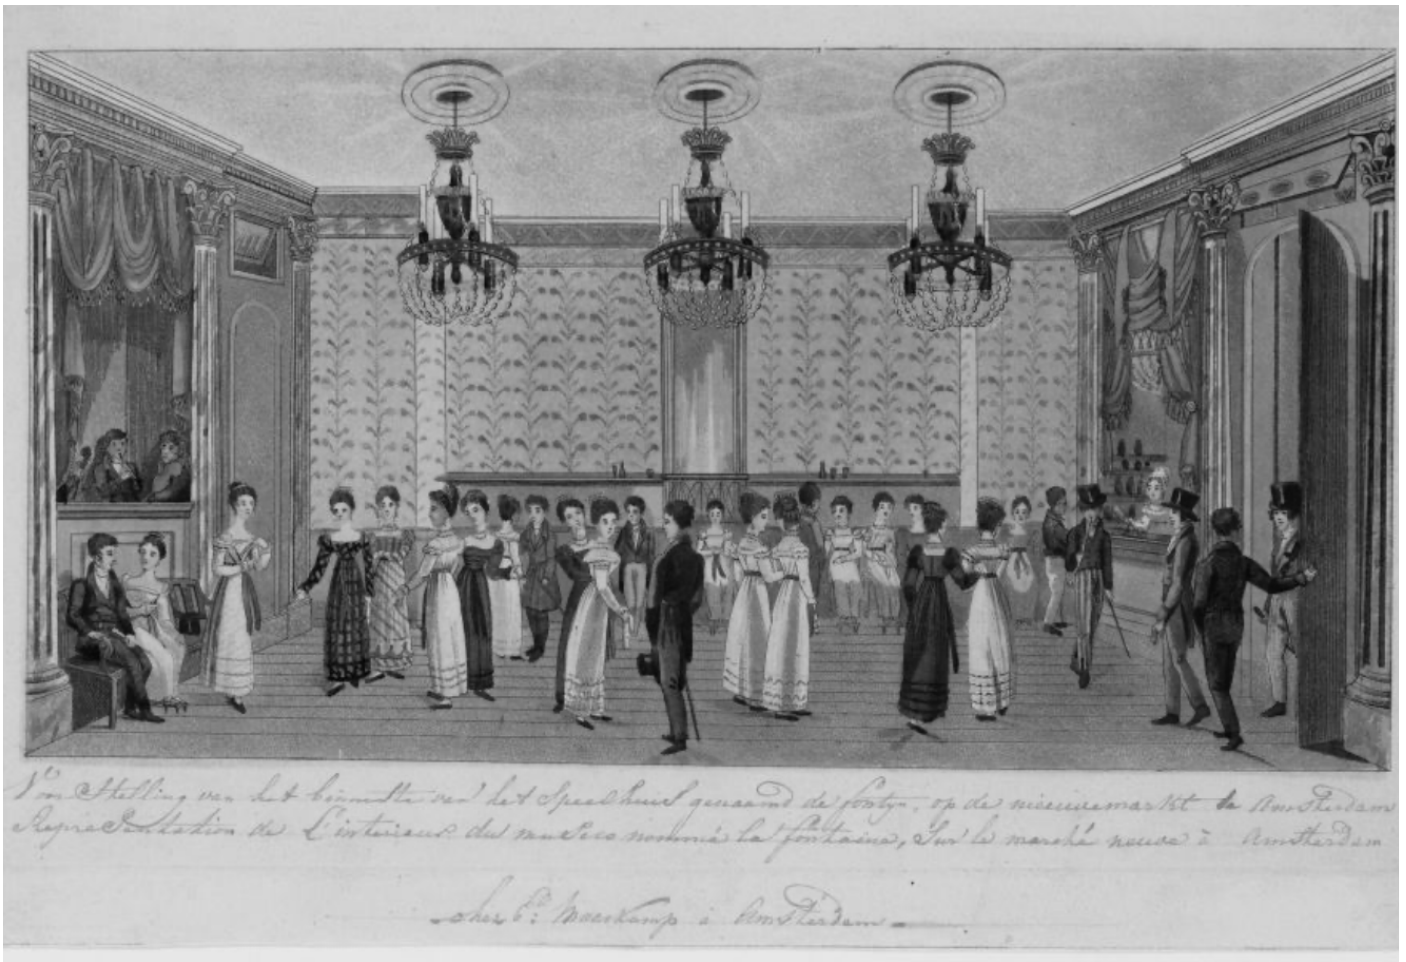 Voor Stelling van het binnenste van het Speelhuis genaamd de fontyn, op de nieuwemarkt te Amsterdam
Representation de L'interieur du musico nommé la fontaine, Sur le marché neuve à Amsterdam
chez Maaskamp à Amsterdam